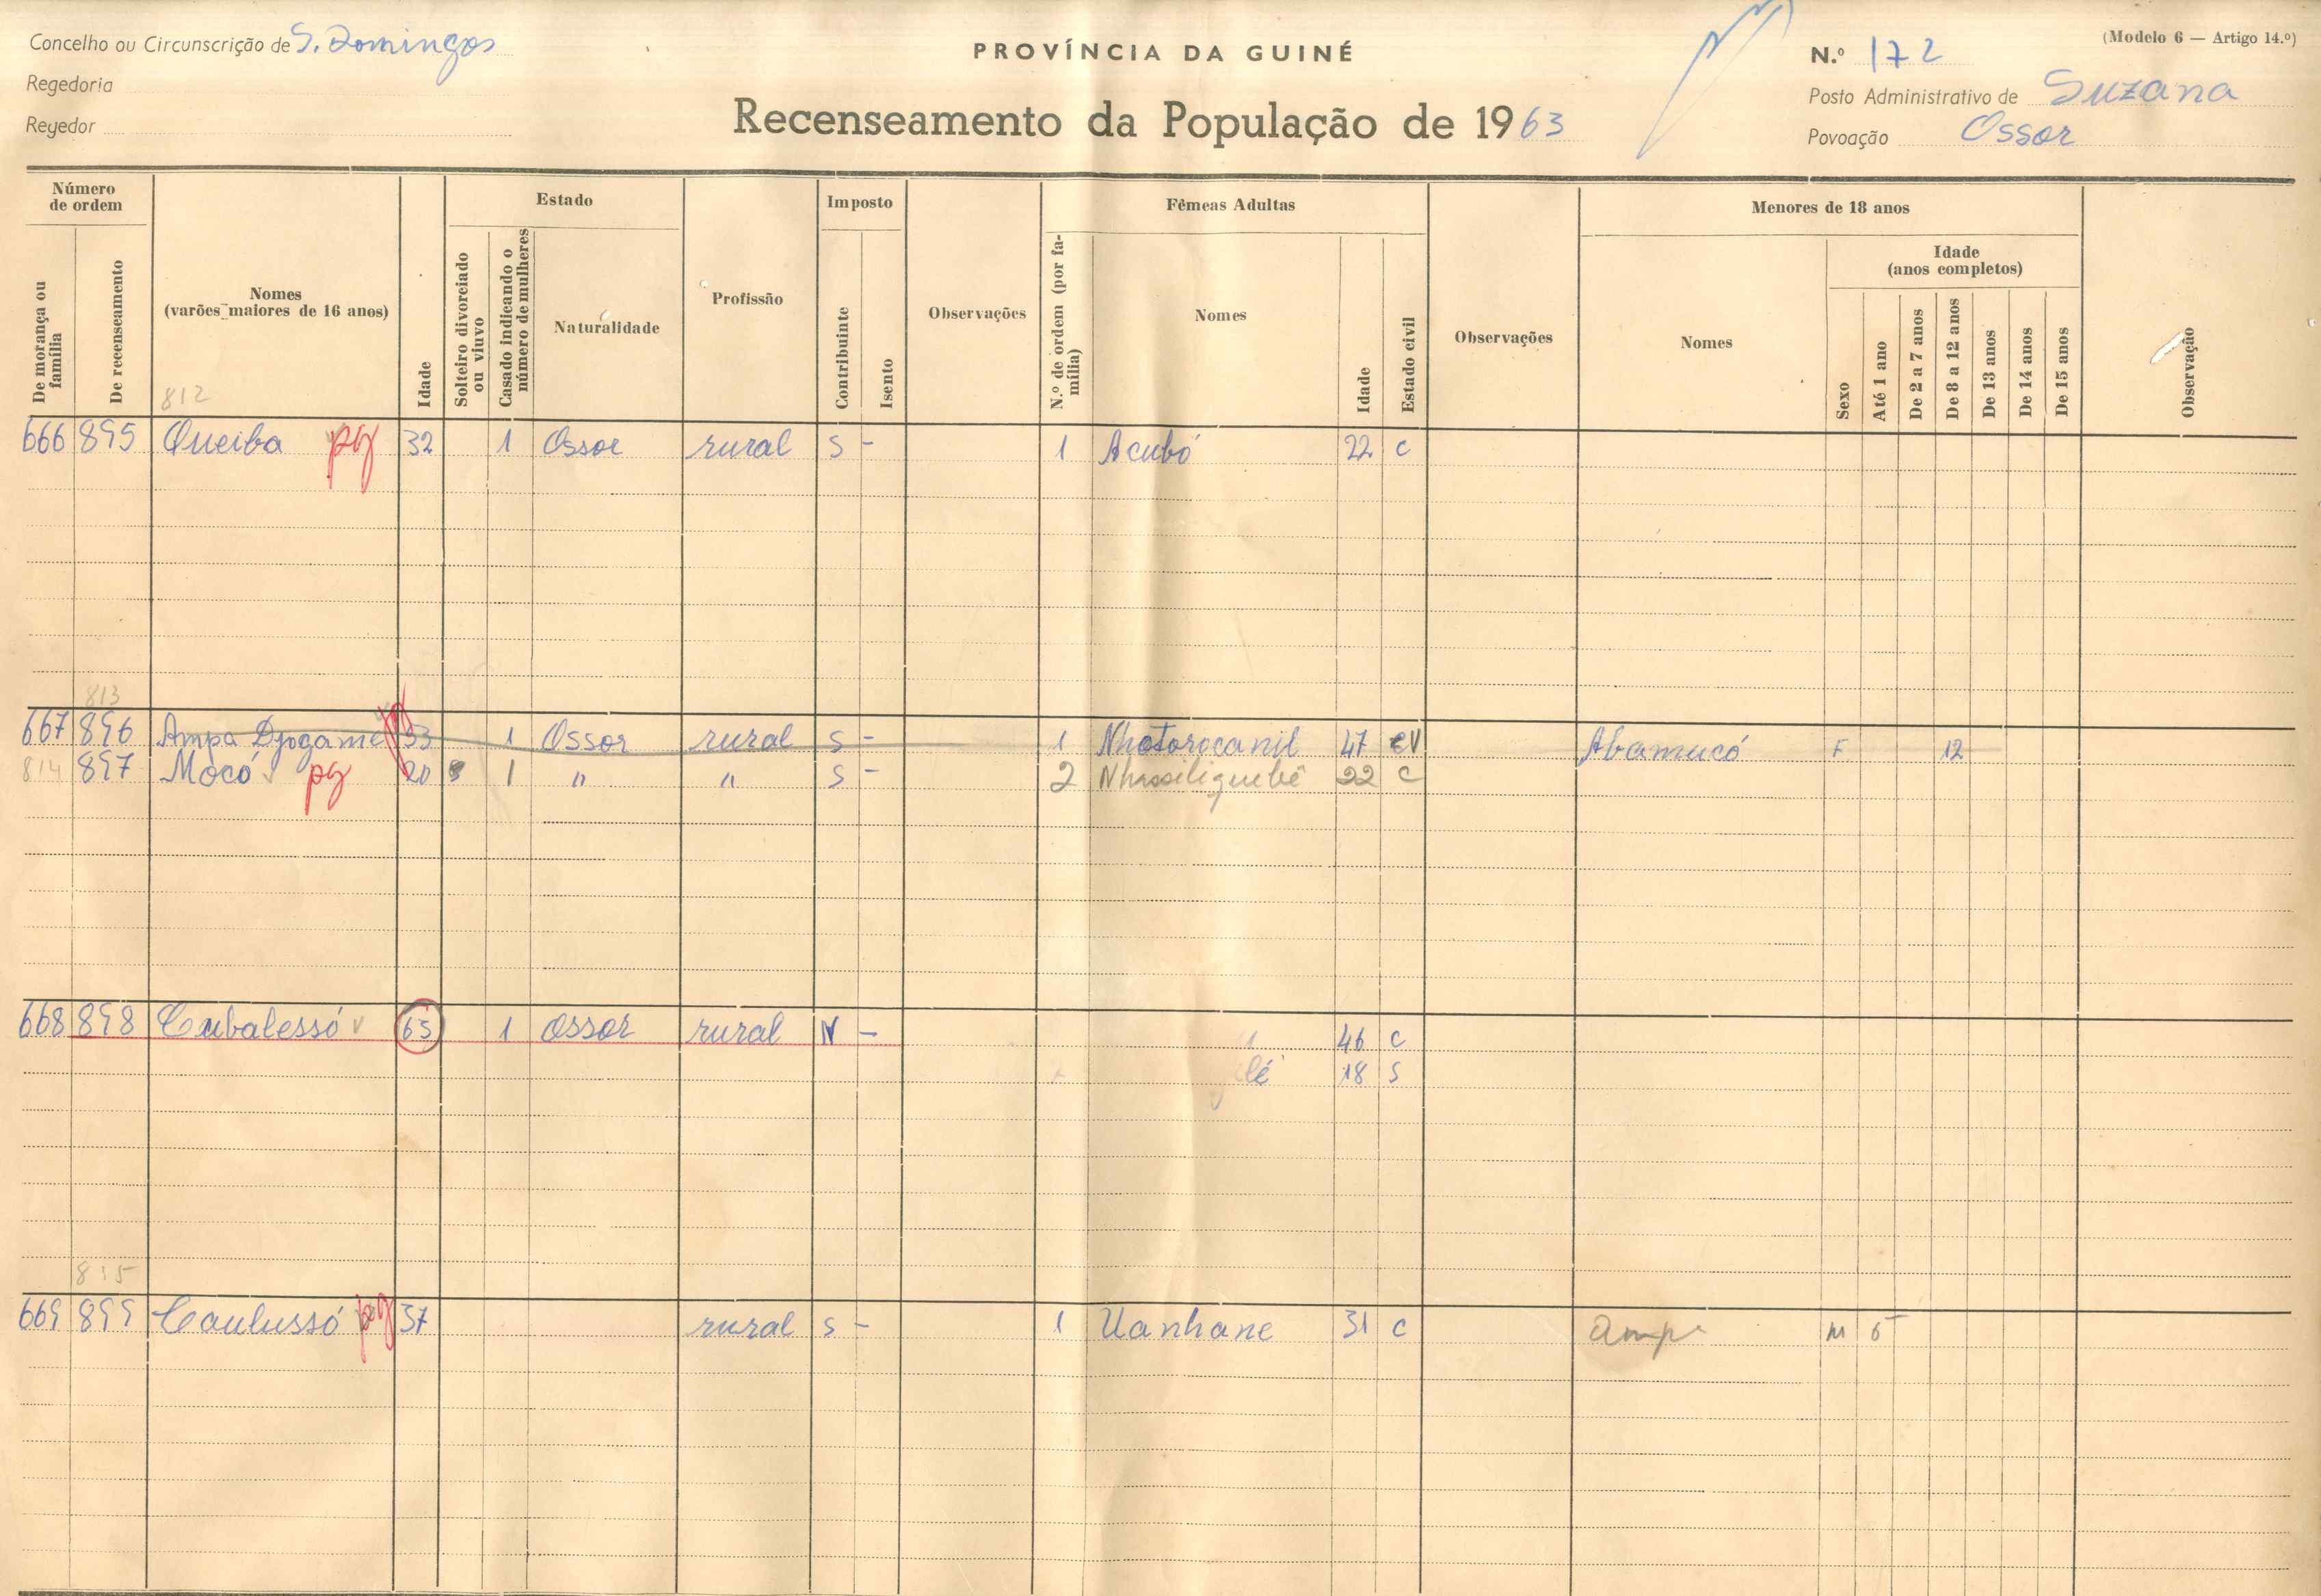 Concelho ou Circunscrição de S. Domingos
Regedoria
Regedor
PROVÍNCIA DA GUINÉ
Recenseamento da População de 1963
(Modelo 6 — Artigo 14.º)
N.º 172
Posto Administrativo de Suzana
Povoação Ossor
Número de ordem
De morança ou família
De recenseamento
Nomes
(varões maiores de 16 anos)
812
Idade
Estado
Solteiro divorciado ou viuvo
Casado indicando o número de mulheres
Naturalidade
Profissão
Imposto
Contribuinte
Isento
Observações
Fêmeas Adultas
N.º de ordem (por família)
Nomes
Idade
Estado civil
Observações
Menores de 18 anos
Nomes
Idade
(anos completos)
Sexo
Até 1 ano
De 2 a 7 anos
De 8 a 12 anos
De 13 anos
De 14 anos
De 15 anos
Observação
666 895 Queiba pg 32 1 Ossor rural S - 1 Acubó 22 C
813
667 896 Ampa Djogame 1 Ossor rural S - 1 Nhotorocanil 47 V Abamucó F 12
814 897 Mocó pg 20 1 " " S - 2 Nhassiliguebê 22 C
668 898 Cubalessó 65 1 Ossor rural N - 46 C
lé 18 S
815
669 899 Caulussó pg 37 rural S - 1 Uanhane 31 C Ampa M